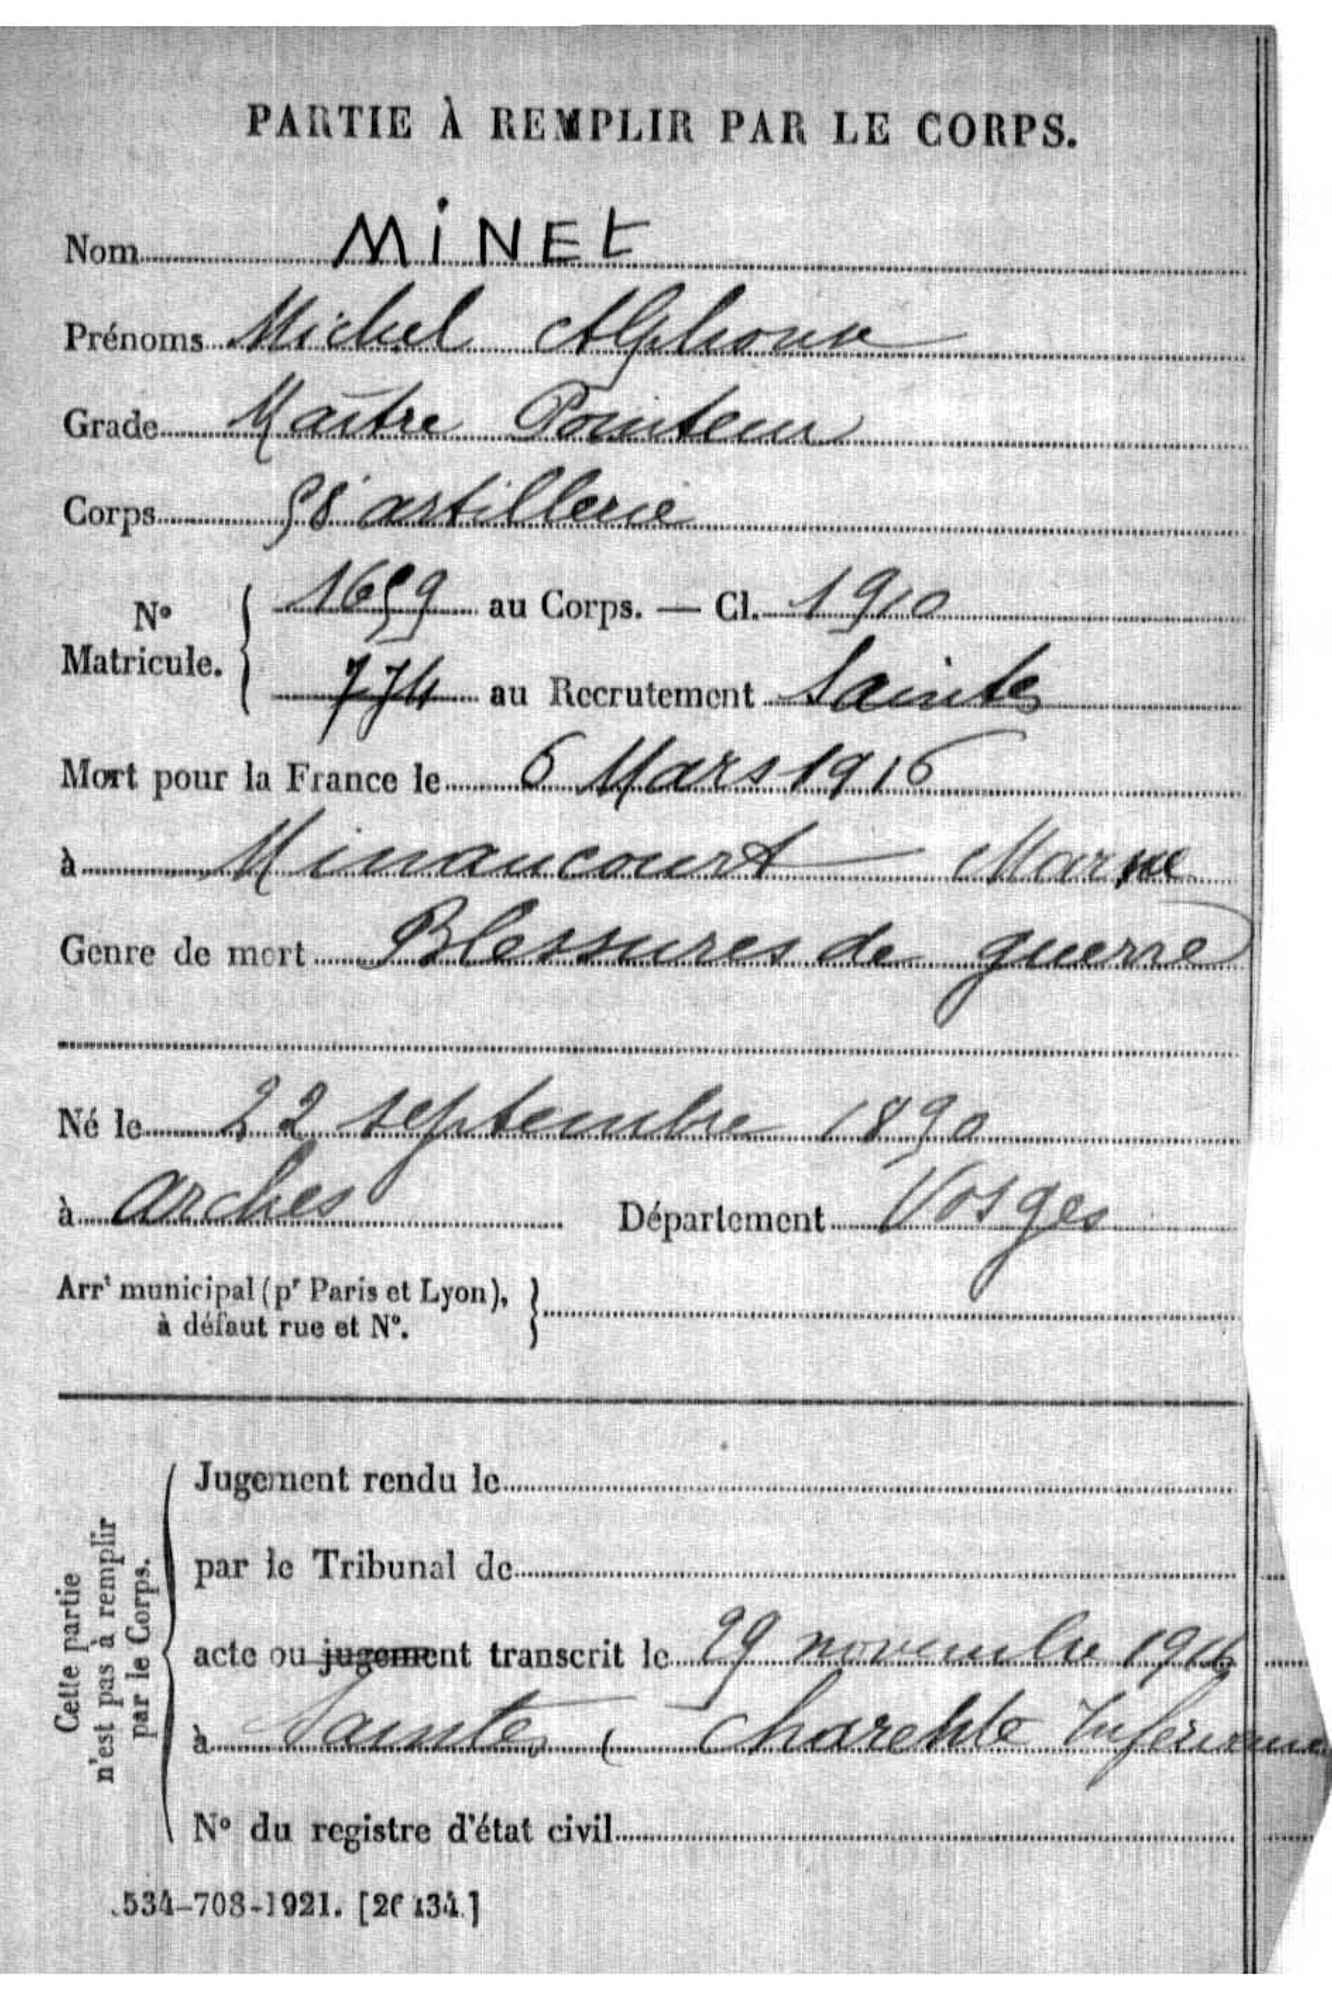 PARTIE À REMPLIR PAR LE CORPS.
Nom MiNEt
Prénoms Michel Alphonse
Grade Maître Pointeur
Corps 58 artillerie
N° Matricule. 1659 au Corps. — Cl. 1910
774 au Recrutement Saintes
Mort pour la France le 6 Mars 1916
à Minaucourt Marne
Genre de mort Blessures de guerre
Né le 22 septembre 1890
à Arches Département Vosges
Arrᵗ municipal (pʳ Paris et Lyon),
à défaut rue et N°.
Cette partie
n'est pas à remplir
par le Corps.
Jugement rendu le
par le Tribunal de
acte ou jugement transcrit le 29 novembre 1916
à Saintes ( Charente Inférieure
N° du registre d'état civil
534–708–1921. [26134.]